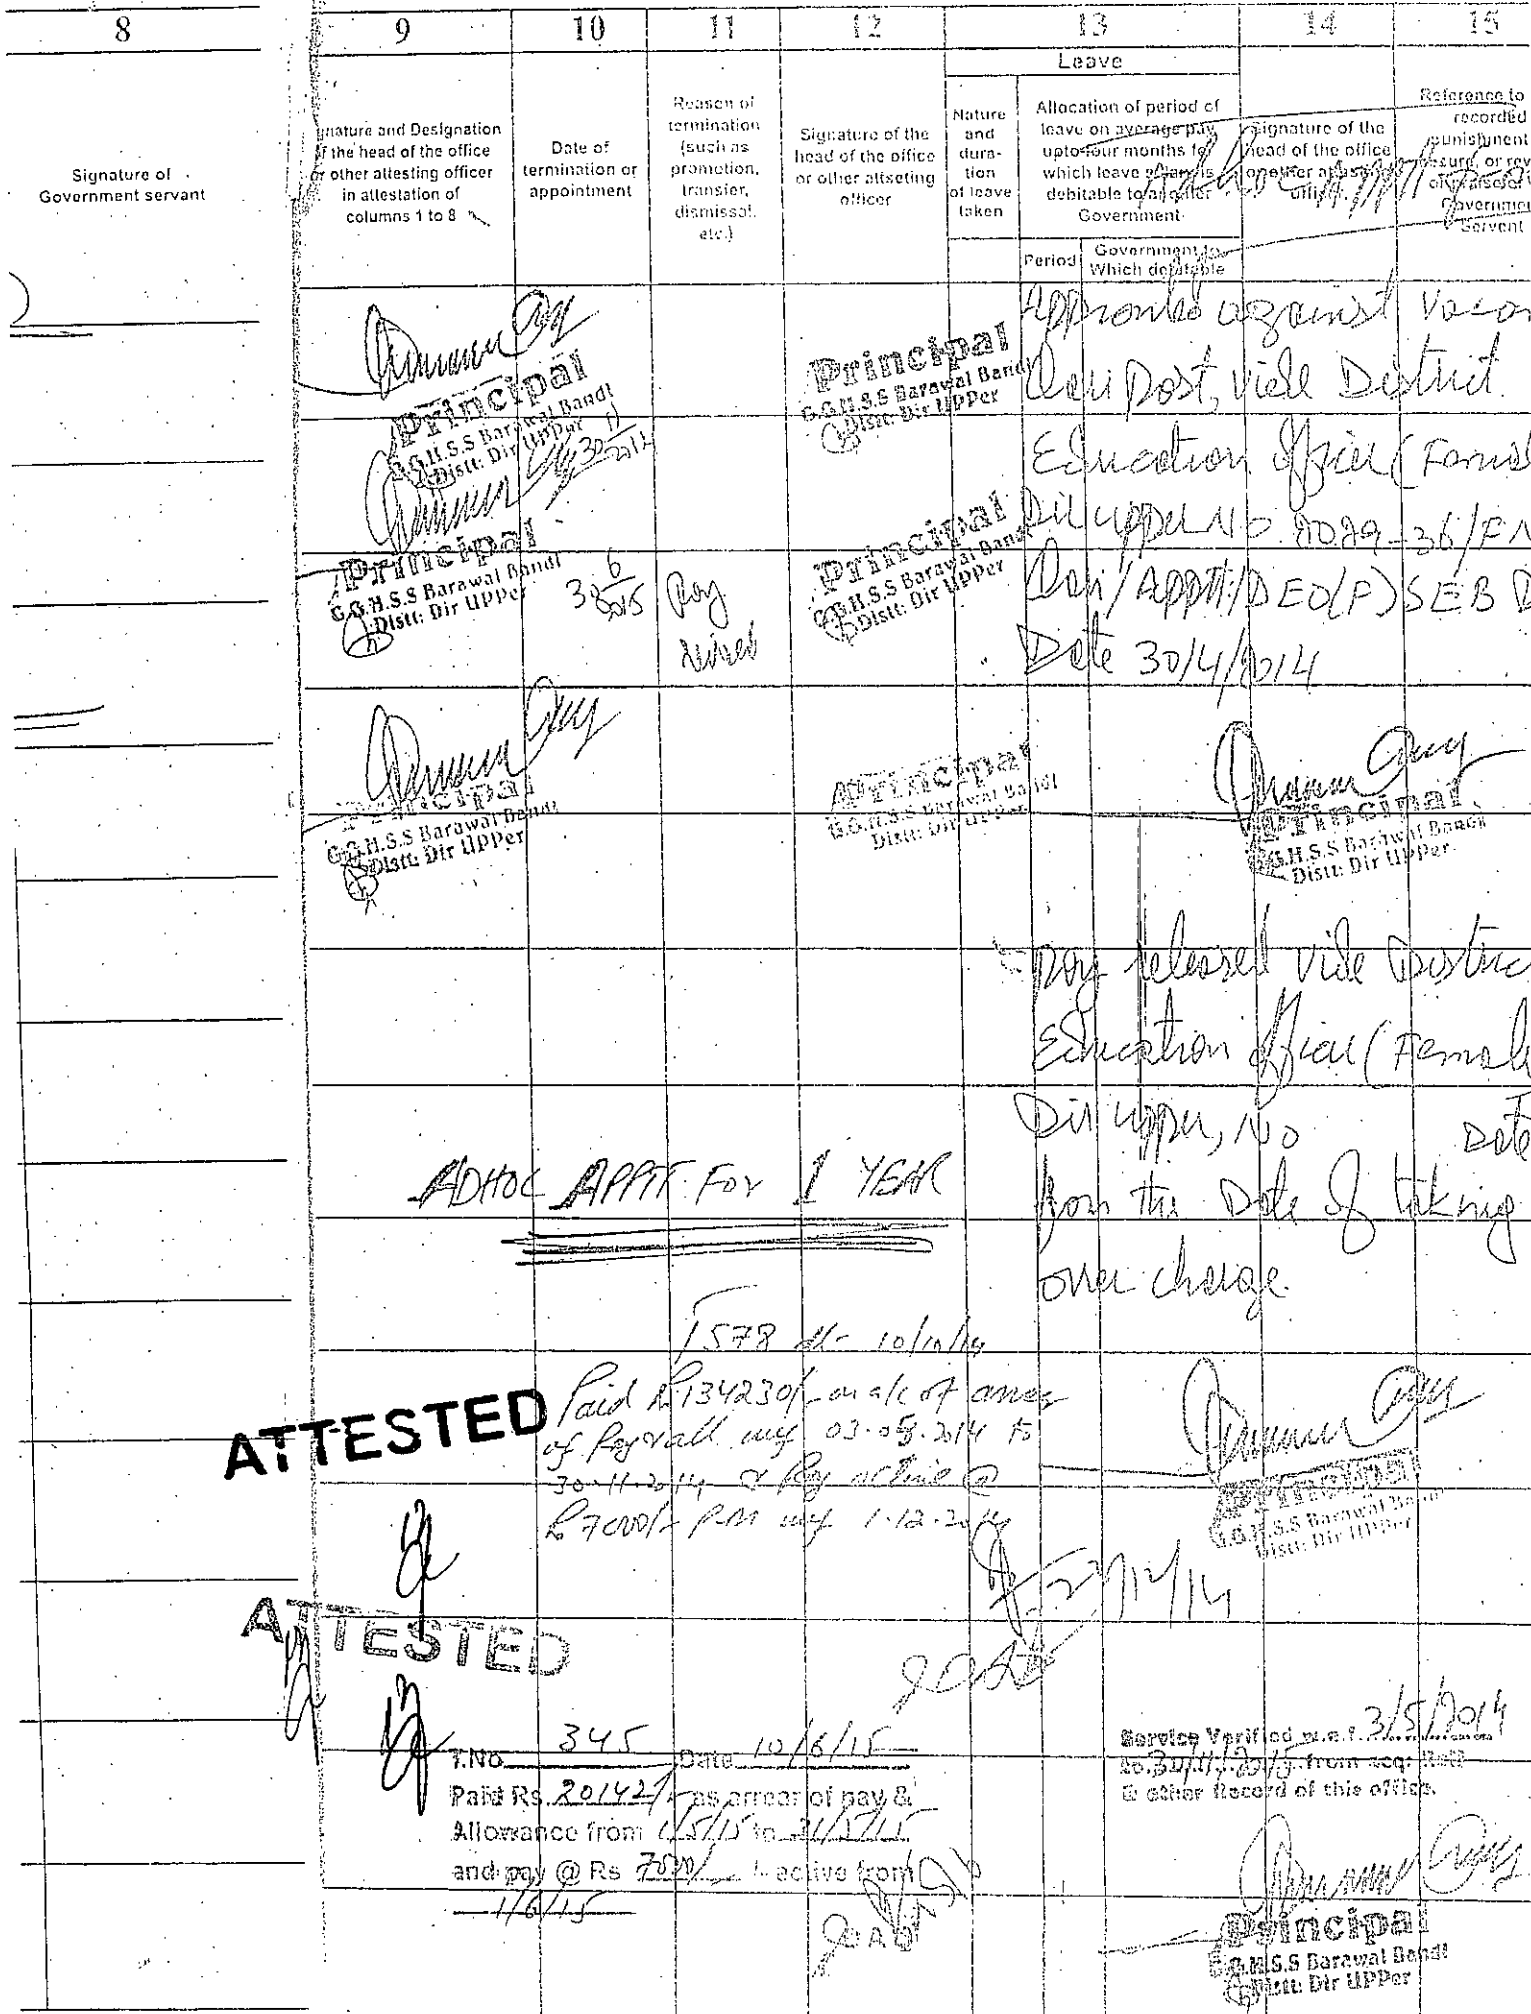 8 9 10 11 12 13 14 15
Leave
Signature of
Government servant
gnature and Designation
f the head of the office
or other attesting officer
in attestation of
columns 1 to 8
Date of
termination or
appointment
Reason of
termination
(such as
promotion,
transfer,
dismissal,
etc.)
Signature of the
head of the office
or other attseting
officer
Nature
and
dura-
tion
of leave
taken
Allocation of period of
leave on average pay
upto four months for
which leave
debitable to another
Government
Period
Government to
Which debitable
Signature of the
head of the office
or other
Reference to
recorded
punishment
Government
Servent
Adhoc Apptt
against
Post, vide District
Education Officer (
Dir upper No 2029-36/F N
/Apptt/DEO(F)SEB D
Date 30/4/2014
Principal
G.G.H.S.S Barawal Bandi
Distt: Dir UPPer
30/11/2014
Principal
G.G.H.S.S Barawal Bandi
Distt: Dir UPPer
Principal
G.G.H.S.S Barawal Bandi
Distt: Dir UPPer
30/6/2015
Pay
revised
Principal
G.G.H.S.S Barawal Bandi
Distt: Dir UPPer
Principal
G.G.H.S.S Barawal Bandi
Distt: Dir UPPer
Principal
G.G.H.S.S Barawal Bandi
Distt: Dir UPPer
Principal
G.G.H.S.S Barawal Bandi
Distt: Dir UPPer
pay released vide Distric
Education Officer (Female
Dir upper, No Date
from the Date of taking
over charge.
ADHOC APPTT: FOR 1 YEAR
1578 dt- 10/
Paid Rs 134230/- on a/c of
of Pay & all wef 03.05.2014 to
30.11.2014 & Pay active @
Rs 7000/- P.M wef 1.12.2014
ATTESTED
Principal
G.G.H.S.S Barawal Bandi
Distt: Dir UPPer
/12/14
ATTESTED
T.No 345 Date 10/6/15
Paid Rs. 20142/- as arrear of pay &
Allowance from 1/5/15 to 31/5/15
and pay @ Rs 7500/- active from
1/6/15
Service Verified w.e.f. 3/5/2014
to 30/11/2015 from acq: Roll
& other Record of this office.
Principal
G.G.H.S.S Barawal Bandi
Distt: Dir UPPer